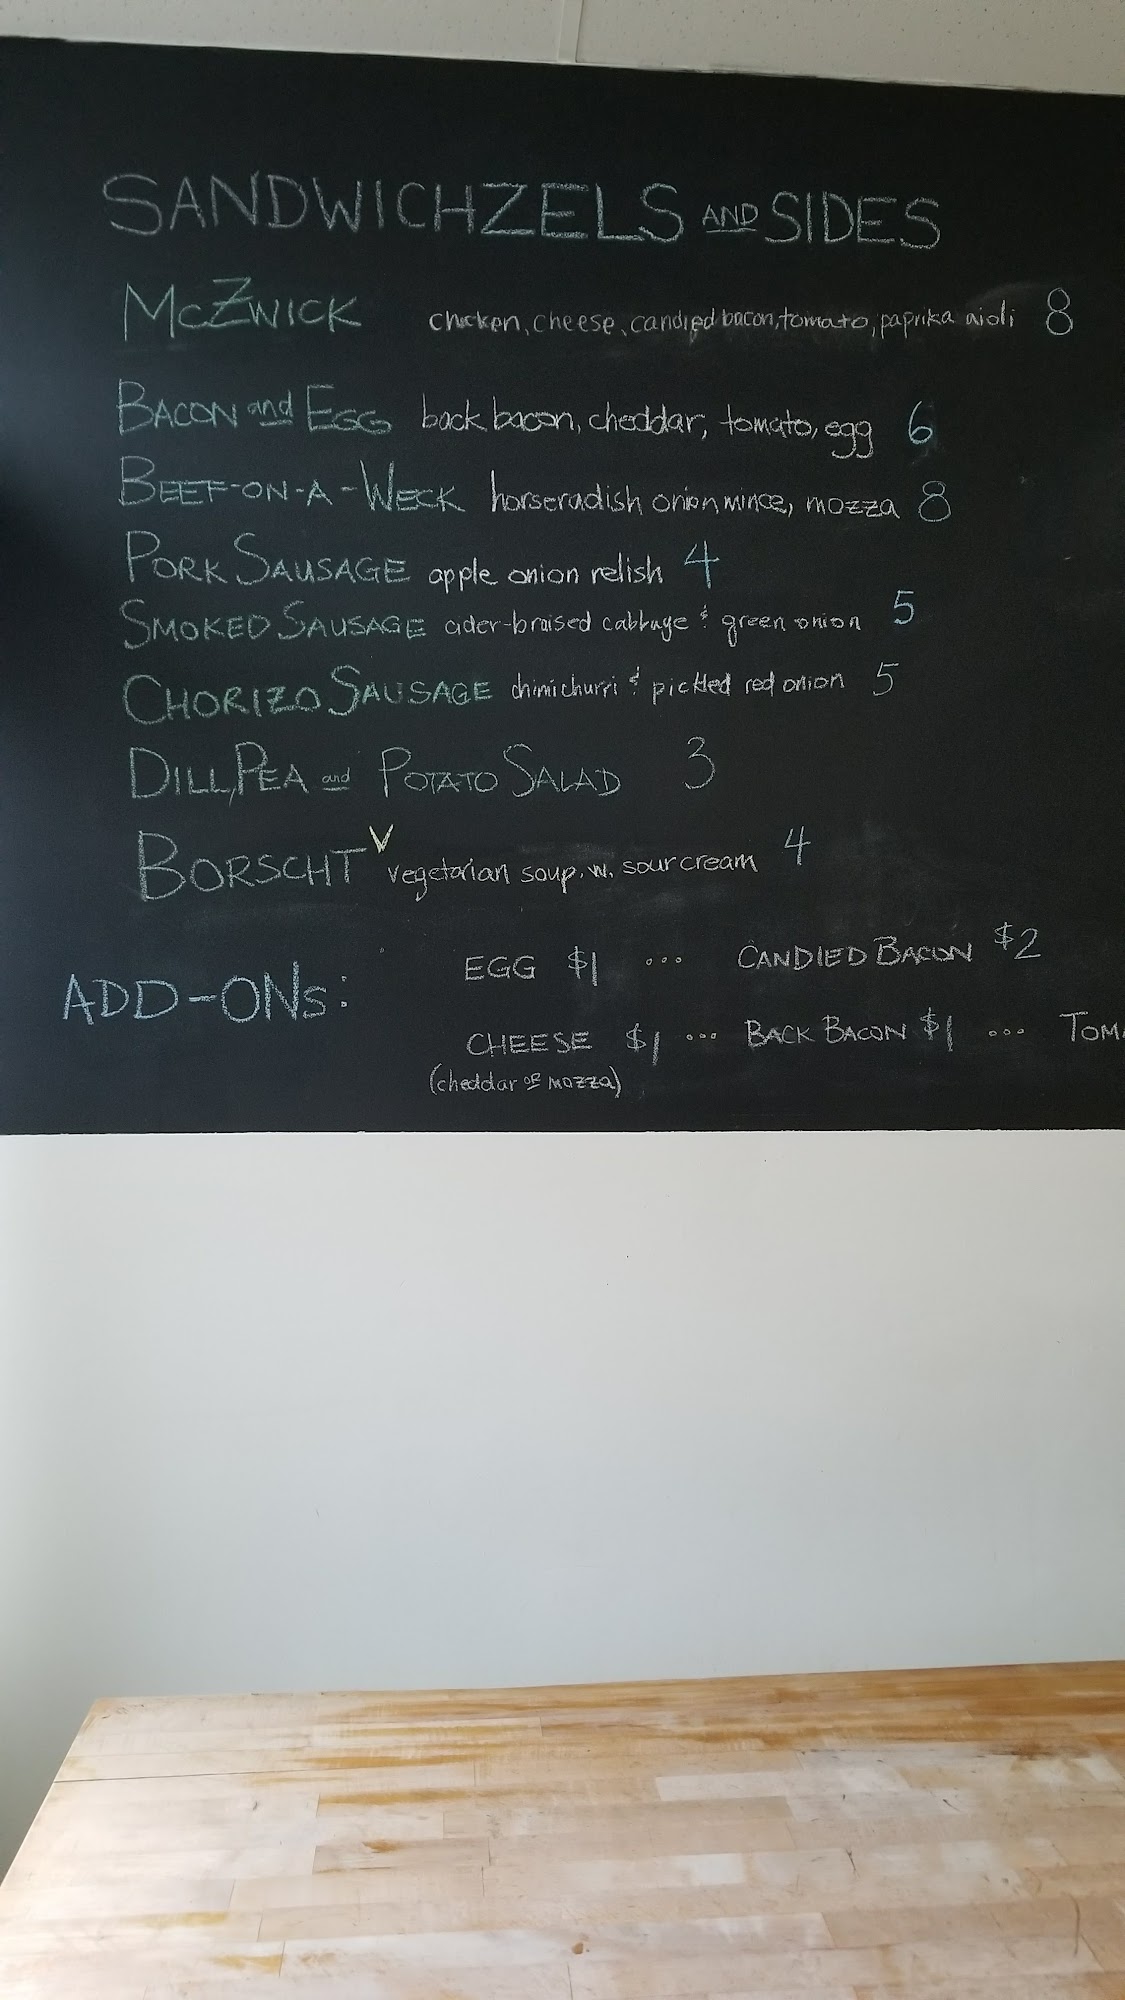 SANDWICHZELS AND SIDES
McZWICK chicken, cheese, candied bacon, tomato, paprika aioli 8
BACON and EGG back bacon, cheddar, tomato, egg 6
BEEF-ON-A-WECK horseradish onion mince, mozza 8
PORK SAUSAGE apple onion relish 4
SMOKED SAUSAGE cider-braised cabbage & green onion 5
CHORIZO SAUSAGE chimichurri & pickled red onion 5
DILL, PEA and POTATO SALAD 3
BORSCHT V vegetarian soup. w. sour cream 4
ADD-ONs: EGG $1 ... CANDIED BACON $2
CHEESE $1 ... BACK BACON $1 ...
(cheddar OR mozza)